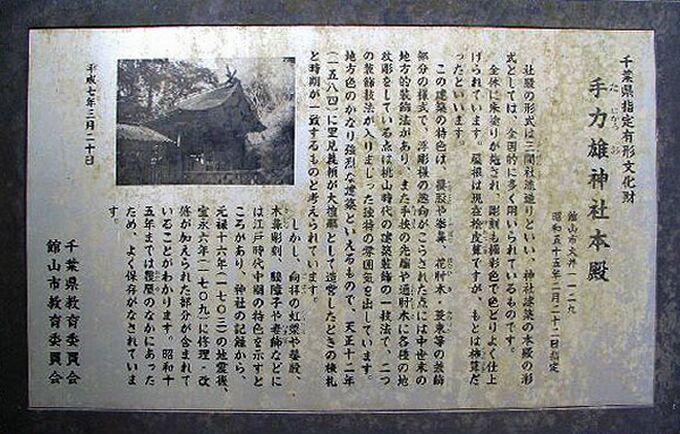 千葉県指定有形文化財
手力雄神社本殿
た ぢから お
館山市大井一一二九
昭和五十五年二月二十二日指定
社殿の形式は三間社流造りといい、神社建築の本殿の形
式としては、全国的に多く用いられているものです。
全体に朱塗りが施され、彫刻も極彩色で色どりよく仕上
げられています。屋根は現在桧皮葺ですが、もとは柿葺だ
ったといいます。
この建築の特色は、蟇股や拳鼻、花肘木・蓑束等の装飾
部分の様式で、浮彫様の透彫がほどこされた点には中世末の
地方的装飾法があり、また手挟の光輪や通肘木に各種の地
紋彫をしている点は桃山時代の建築装飾の一技法で、二つ
の装飾技法が入りまじった独特の雰囲気を出しています。
地方色のかなり強烈な建築といえるもので、天正十二年
(一五八四)に里見義頼が大檀那として造営したときの棟札
と時期が一致するものと考えられています。
しかし、向拝の虹梁や蟇股、
木鼻彫刻、脇障子や老飾などに
は江戸時代中期の特色を示すと
ころがあり、神社の記録から、
元禄十六年(一七〇三)の地震後、
宝永六年(一七〇九)に修理・改
築が加えられた部分が含まれて
いることがわかります。昭和十
五年までは覆屋のなかにあった
ため、よく保存がなされていま
す。
平成七年三月二十日
千葉県教育委員会
館山市教育委員会